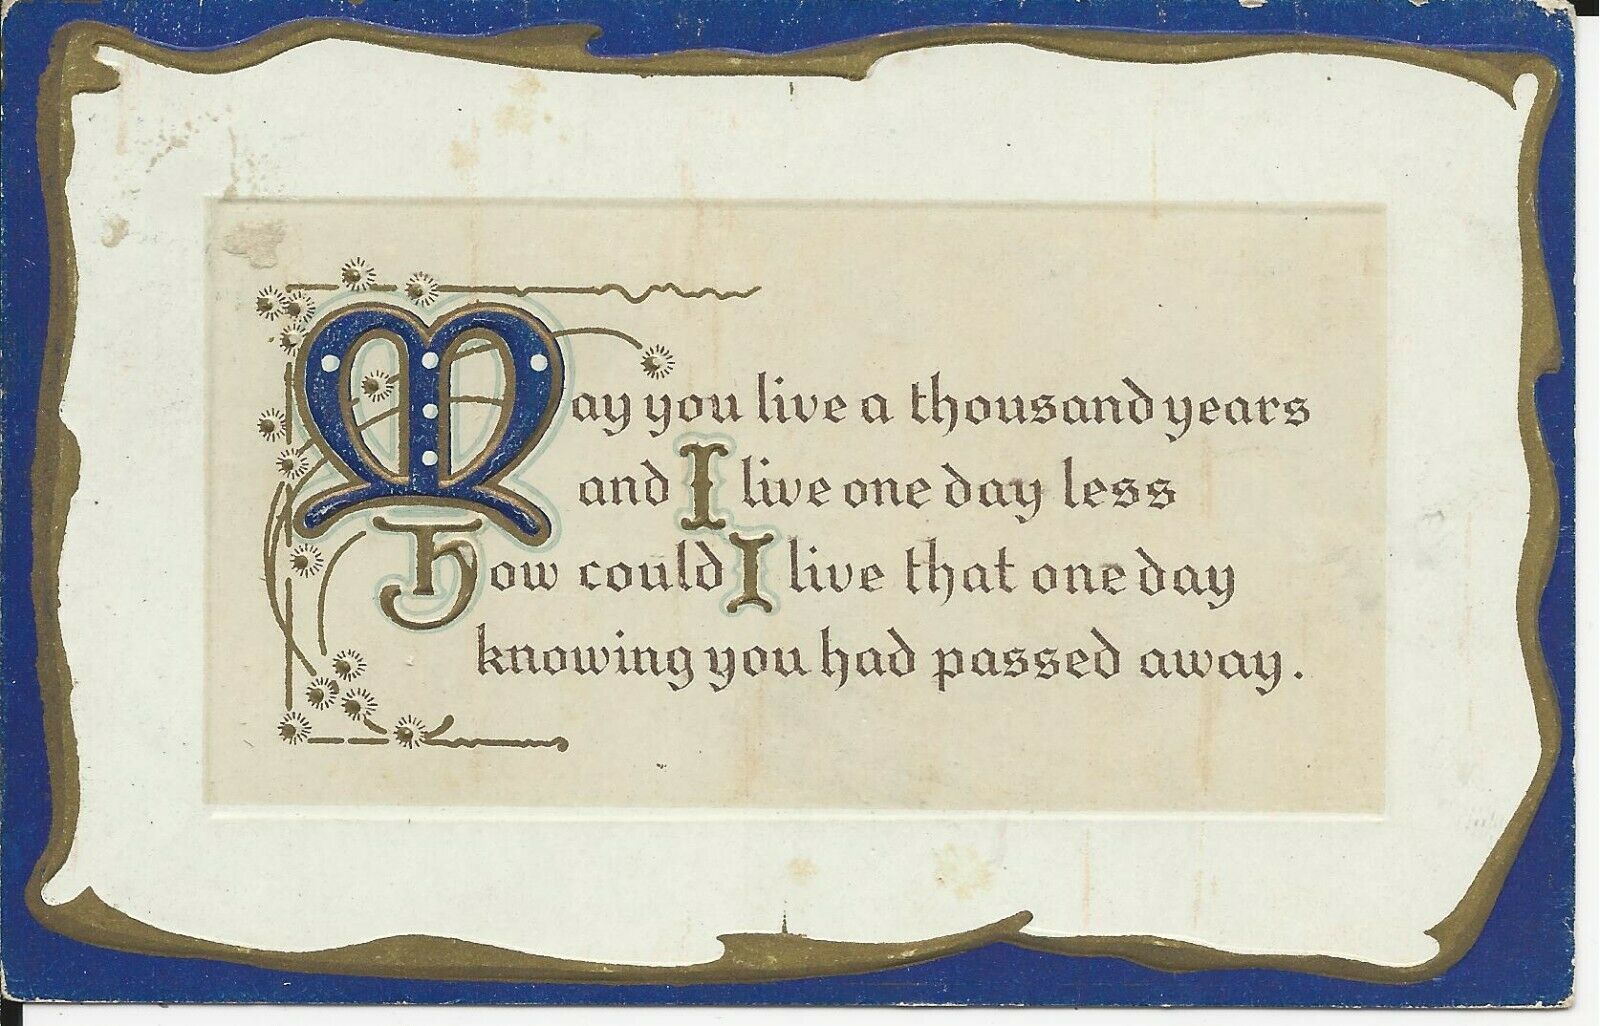 May you live a thousand years
and I live one day less
How could I live that one day
knowing you had passed away.